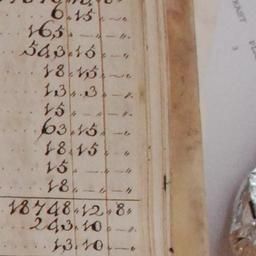 6 " 15 " — "
165 " — " — "
543 " 15 " — "
18 " 15 " — "
13 " 3 " — "
15 " — " — "
63 " 15 " — "
18 " 15 " — "
15 " — " — "
18 " — " — "
18748 " 12 " 8 "
243 " 10 " — "
13 " 10 " — "